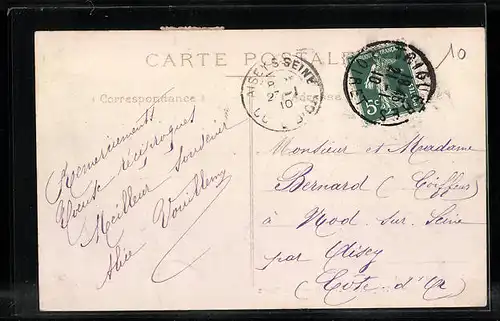 CARTE POSTALE
Correspondance
10
AISEY-S-SEINE
2 - 1
10
COTE D'OR
5c
Remerciements
Voeux réciproques
Meilleur souvenir
Alice Vouillemy
Monsieur et Madame
Bernard (Coiffeur)
à Nod sur Seine
par Aisey
Côte d'Or